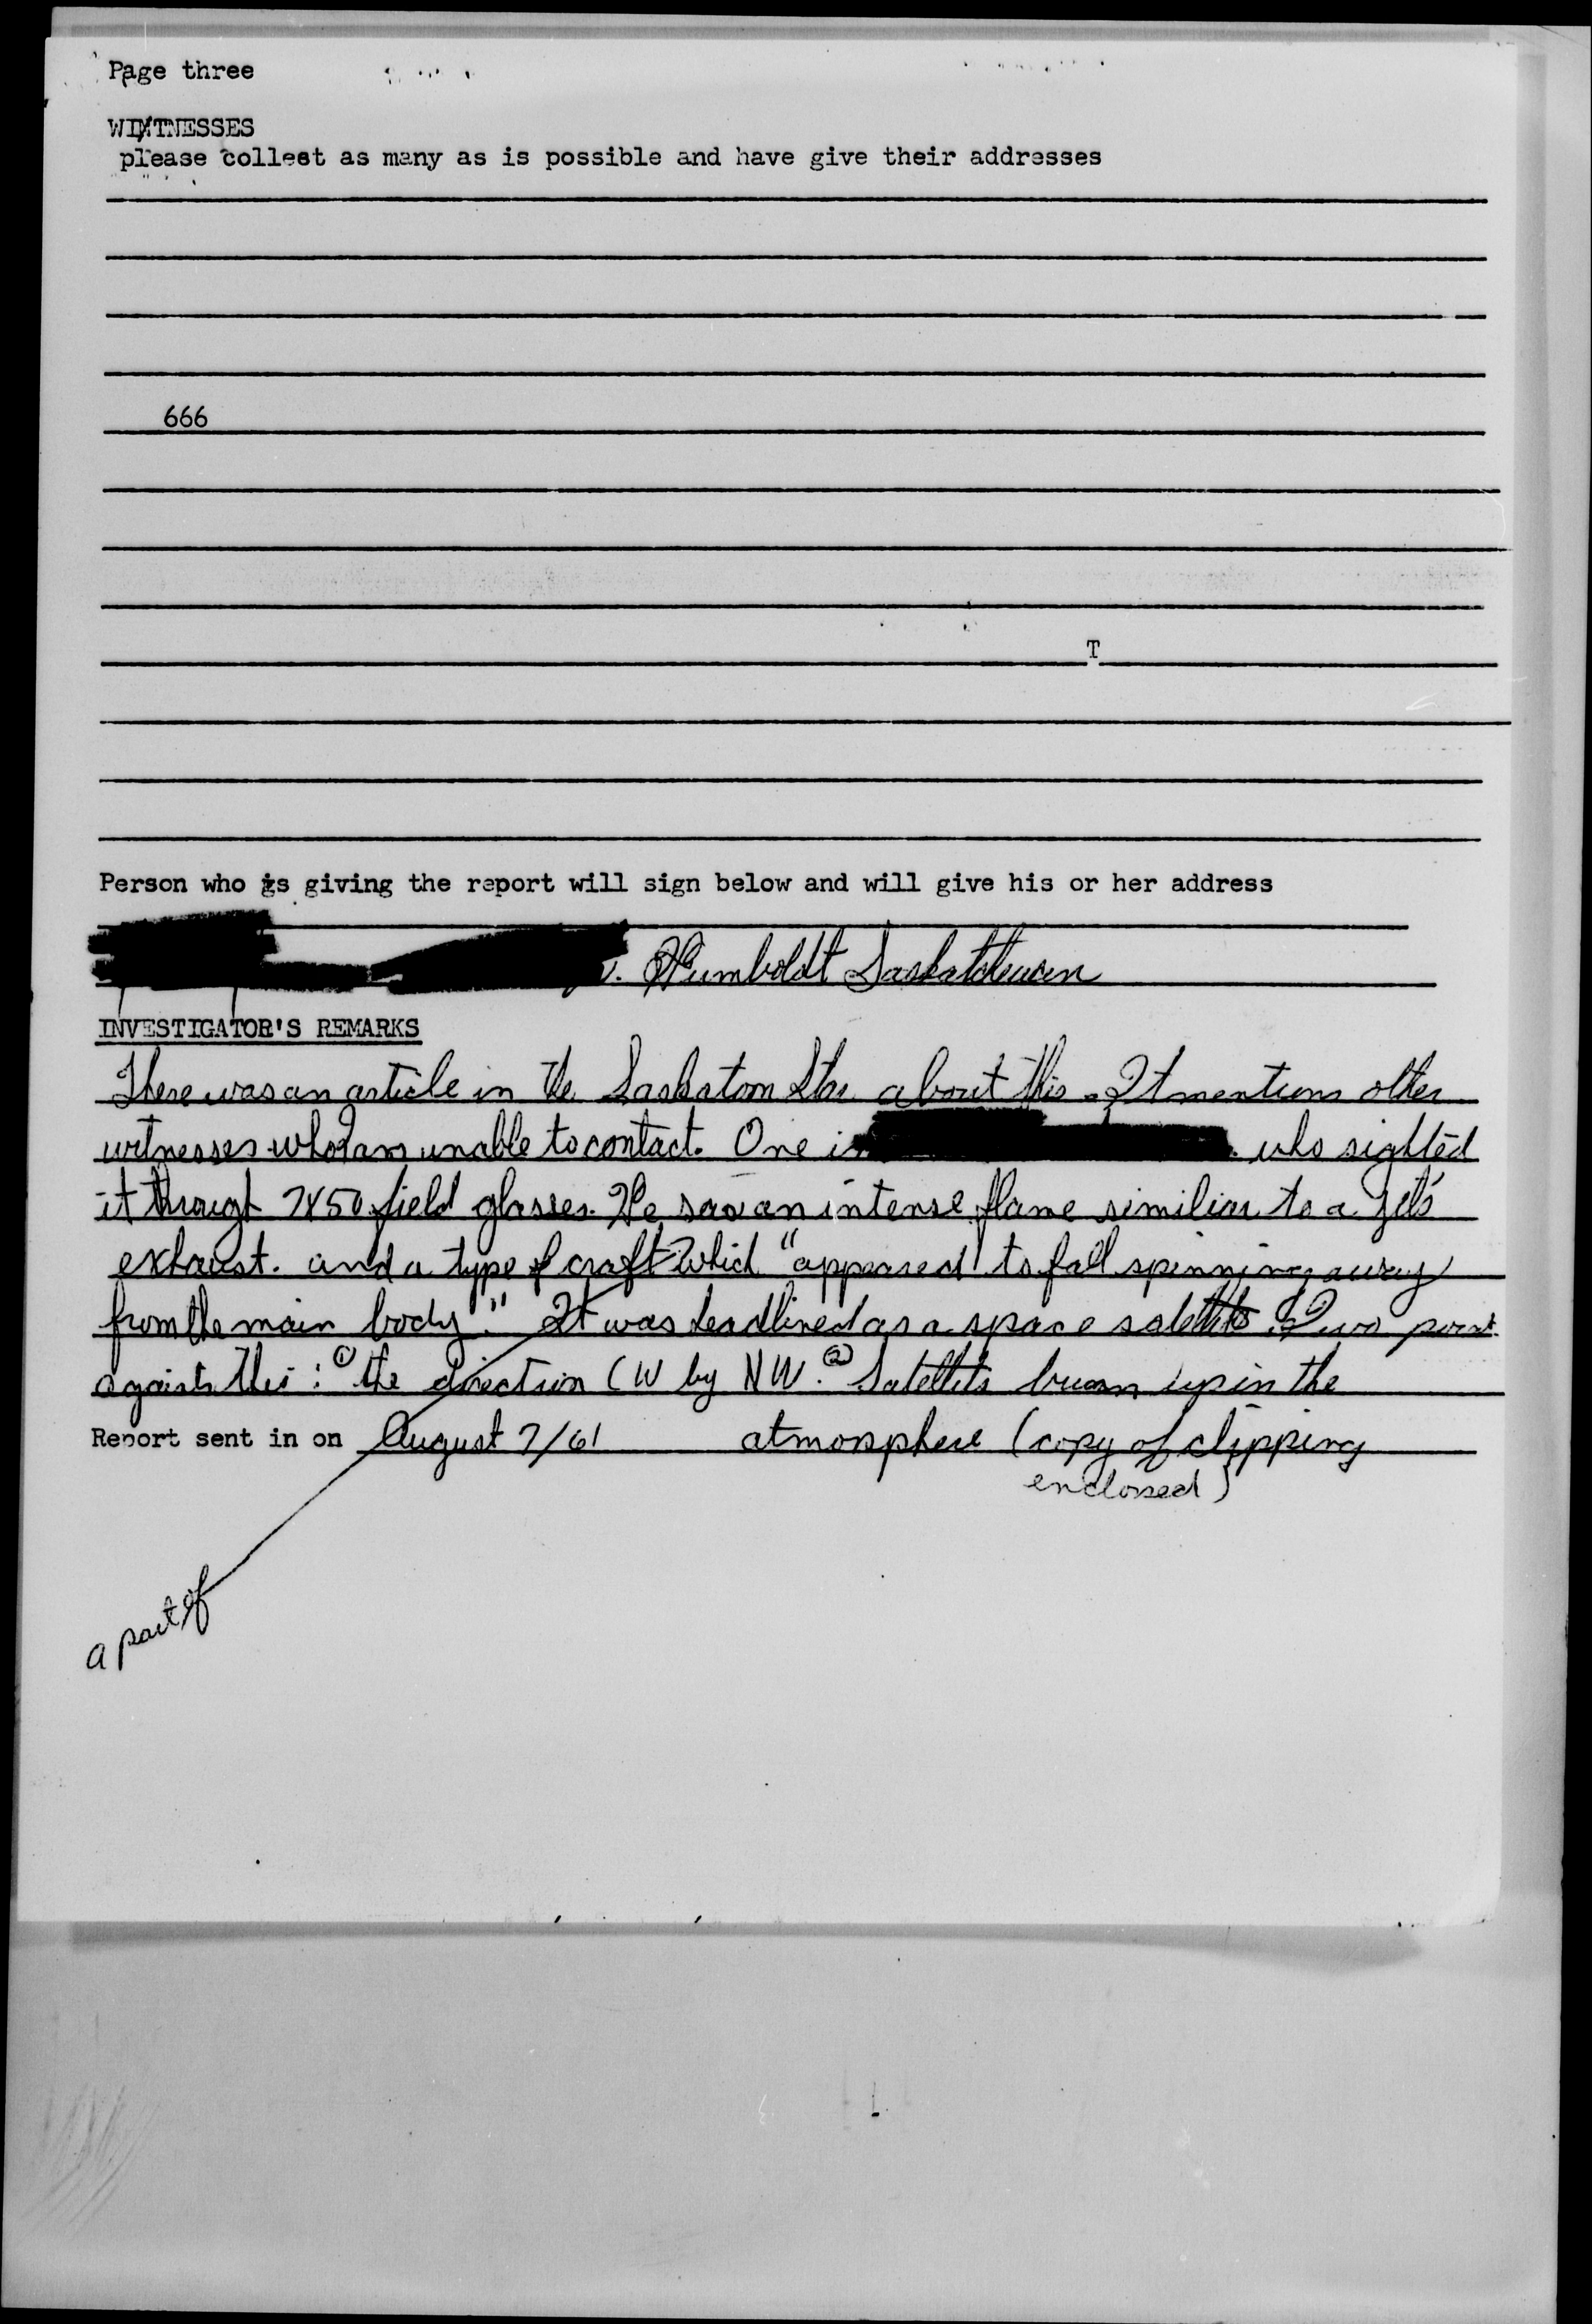 Page three
WIXTNESSES
please collest as many as is possible and have give their addresses
666
T
Person who is giving the report will sign below and will give his or her address
Humboldt Saskatchewan
INVESTIGATOR'S REMARKS
There was an article in the Saskatoon Star about this. It mentions other
witnesses who I am unable to contact. One is who sighted
it througt 7X50 field glasses. He saw an intense flame similiar to a jet's
exhaust. and a type of craft which "appeared to fall spinning away
from the main body." It was headlined as a space satellite. Two point
against this: ① the direction (W by NW. ② Satellits burn up in the
Report sent in on August 7/61 atmosphere (copy of clipping
enclosed)
a part of